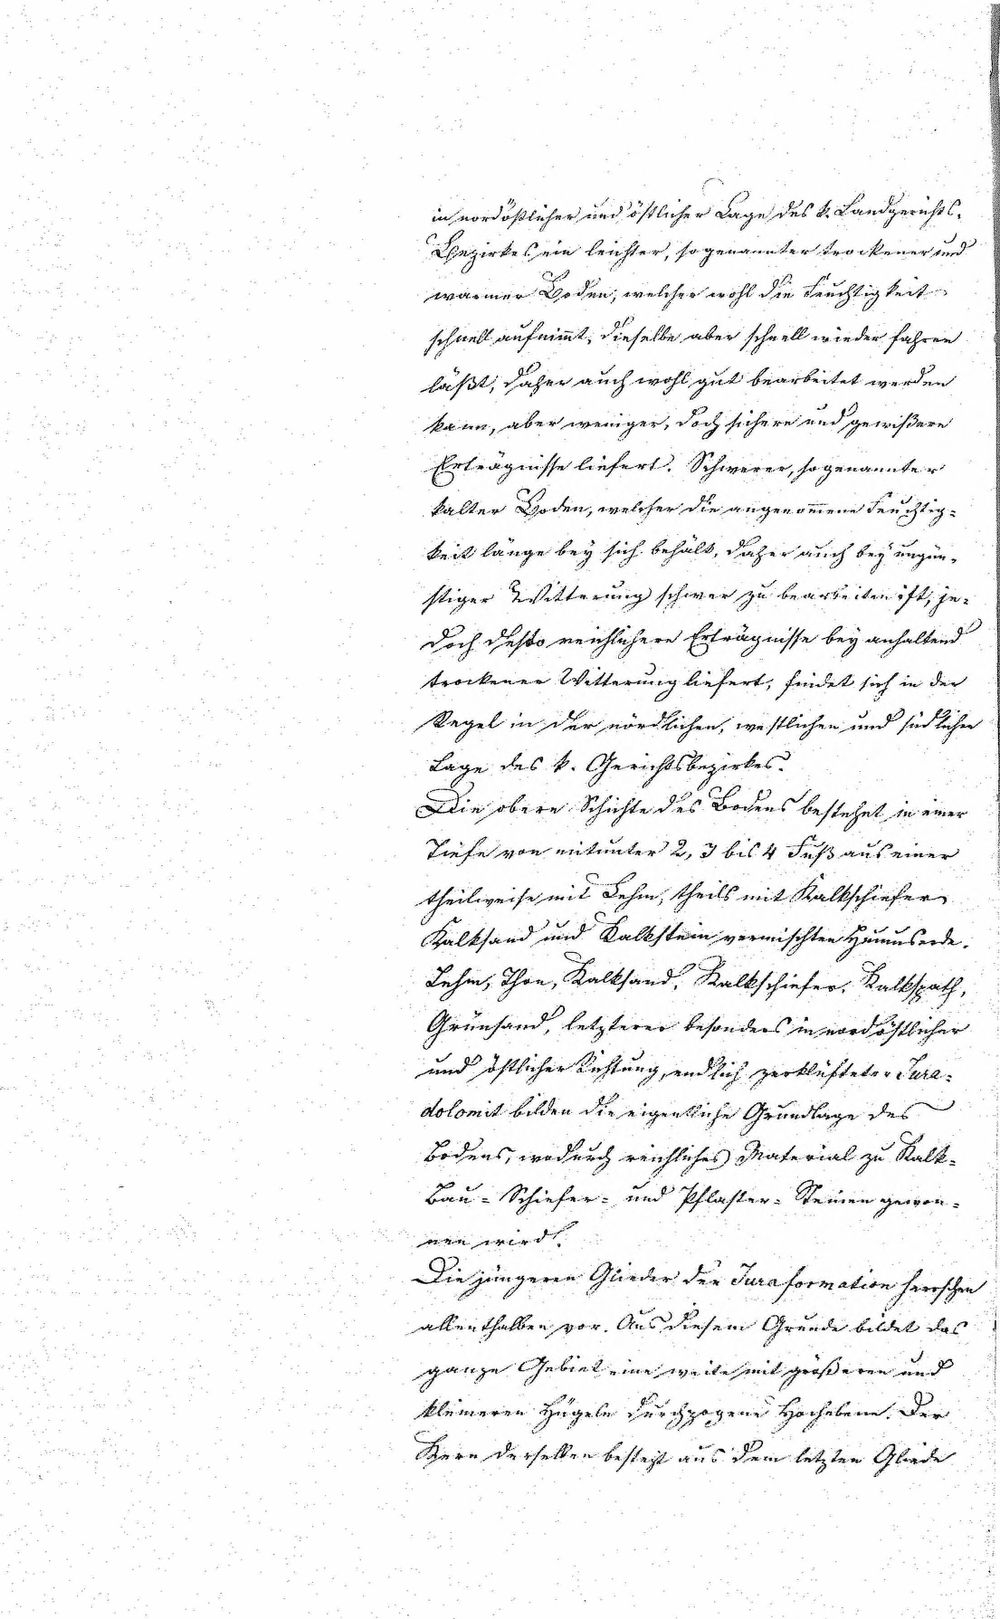 in nordöstlicher und östlicher Lage des k. Landgerichts-
Bezirkes ein leichter, sogenannter trockener und
warmer Boden, welcher wohl die Feuchtigkeit
schnell aufnim̄t, dieselbe aber schnell wieder fahren
läßt, daher auch wohl gut bearbeitet werden
kann, aber weniger, doch sichere und gewißere
Erträgnisse liefert. Schwerer, sogenannter
kalter Boden, welcher die angenom̄ene Feuchtig-
keit länge bey sich behält, daher auch bey ungün-
stiger Witterung schwer zu bearbeiten ist, je-
doch desto reichlichere Erträgnisse bey anhaltend
trockener Witterung liefert, findet sich in der
Regel in der nördlichen, westlichen und südlichen
Lage des k. Gerichtsbezirkes.
Die obere Schichte des Bodens bestehet in einer
Tiefe von mitunter 2, 3 bis 4 Fuß aus einer
theilweise mit Lehm, theils mit Kalkschiefer
Kalksand und Kalkstein vermischten Humuserde.
Lehm, Thon, Kalksand, Kalkschiefer, Kalkspath,
Grünsand, letzterer besonders in nordöstlicher
und östlicher Richtung, endlich zerklüfteter Jura-
dolomit bilden die eigentliche Grundlage des
Bodens, wodurch reichliches Material zu Kalk-
Bau- Schiefer- und Pflaster- Steinen gewon-
nen wird.
Die jüngeren Glieder der Juraformation herrschen
allenthalben vor. Aus diesem Grunde bildet das
ganze Gebiet eine weite mit größeren und
kleineren Hügeln durchzogene Hochebene. Der
Kern derselben besteht aus dem letzten Gliede